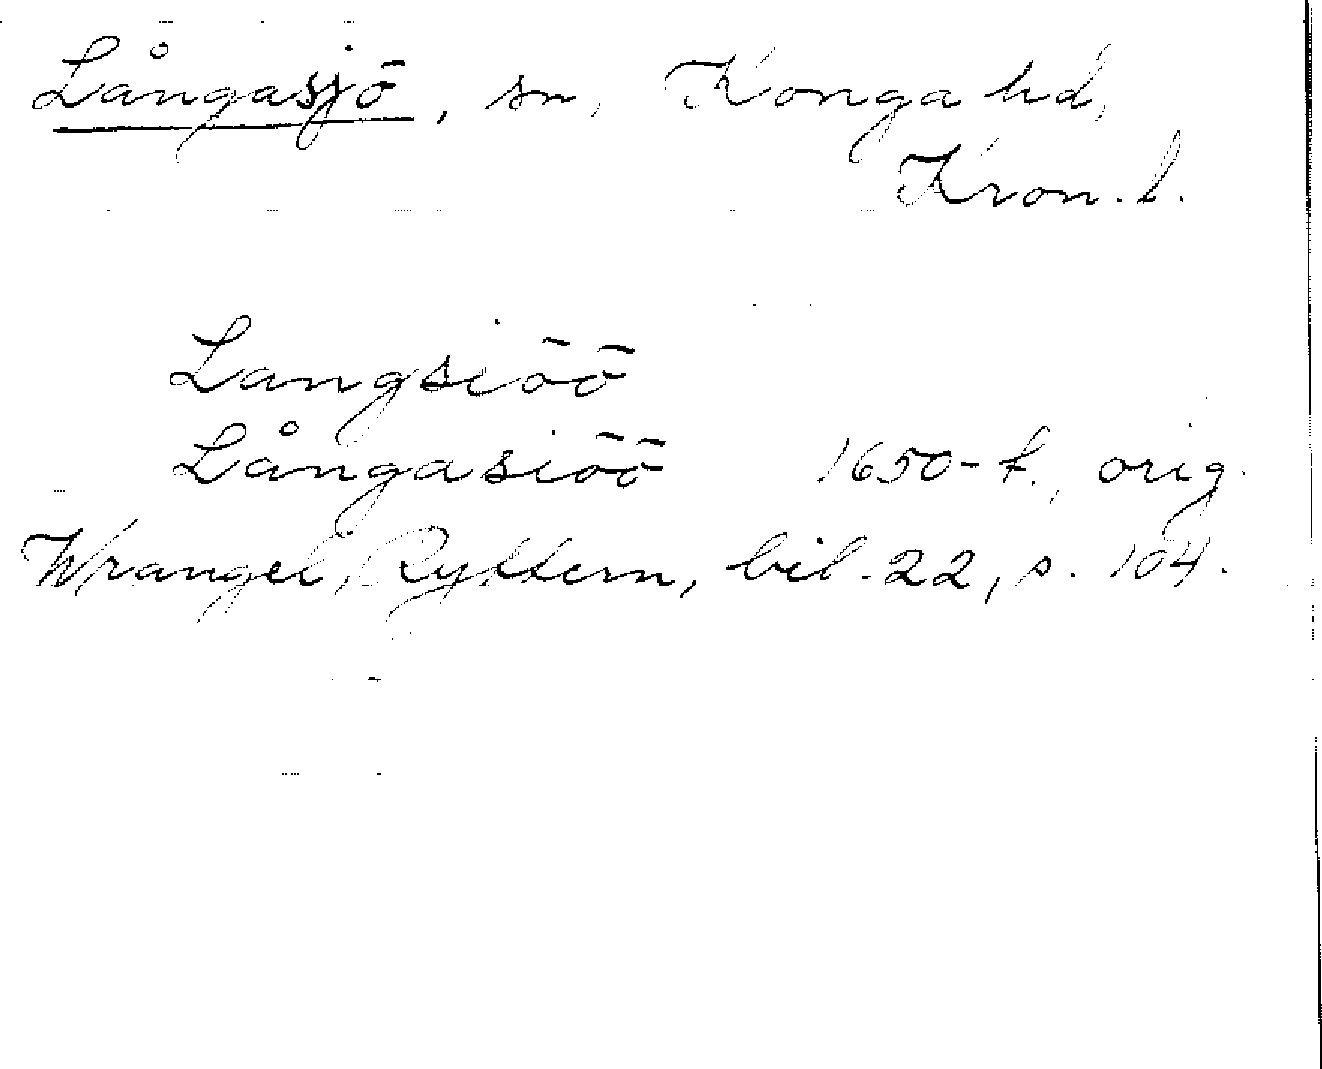 Långasjö, sn, Konga hd,
Kron. l.
Langsiöö
Långasiöö 1650-t., orig.
Wrangel, Ryttern, bil. 22, s. 104.